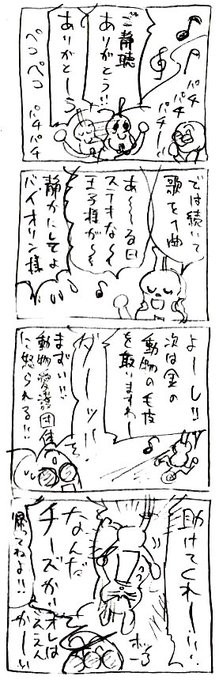 ご静聴
ありがとう!!
ありがとーう
ペコペコ
パチ
パチ
パチ
パチ
パチ
では続いて
歌を1曲
あ～～る日
ステキな～
王子様が～
静かにしてよ
バイオリン様
よーし!!
次は金の
動物の毛皮
を取いますわー
ダーッ!!
まずい!!!
動物愛護団体
に怒られる!!
助けてくれー!!
なんだ
チーズか!!
オレは
帰ってねよ!!